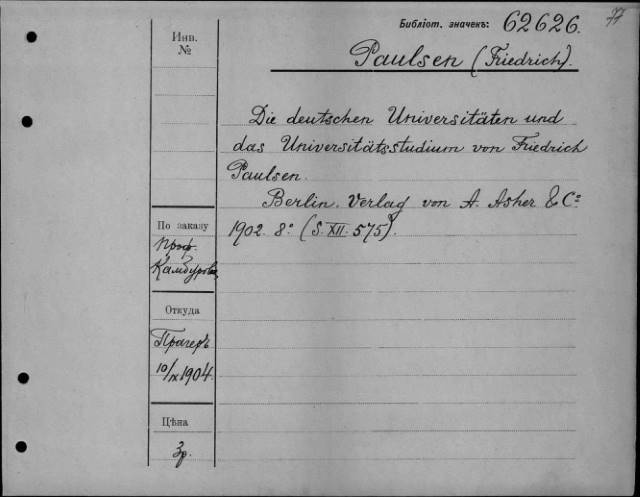 77
Библіот. значекъ: 62626.
Paulsen (Friedrich).
Инв.
№
Die deutschen Universitäten und
das Universitätsstudium von Friedrich
Paulsen.
Berlin. Verlag von A. Asher & Cº
1902. 8.º (S. XII. 575).
По заказу
проф.
Откуда
Прагеръ
10/IX 1904.
Цѣна
3р.